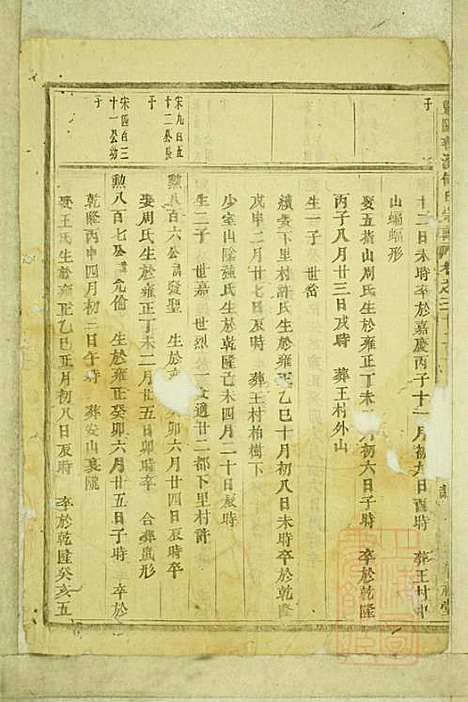 十二日未時卒於嘉慶丙子十一月初九日酉時 葬王村中
山蝙蝠形
娶五黃山周氏生於雍正丁未 月初六日子時 卒於乾隆
丙子八月廿三日戌時 葬王村外山
生一子 世
續娶下里村許氏生於雍正乙巳十月初八日未時卒於乾隆
戊申二月廿八日亥時 葬王村柏樹下
少室山陰 氏生於乾隆己未四月二十日辰時
生二子 世嘉 世烈 女適廿二都下里村許
宋九百五
十二公長
子
勲八百六公 發聖 生於 卯六月廿四日辰時卒
娶周氏生於雍正丁未二月廿五日卯時卒 合葬 形
宋四百三
十一公幼
子
勲八百七公 元倫 生於雍正癸卯六月廿五日子時 卒於
乾隆丙申四月初二日午時 葬安山裏隴
娶王氏生於雍正乙巳正月初八日辰時 卒於乾隆癸亥五